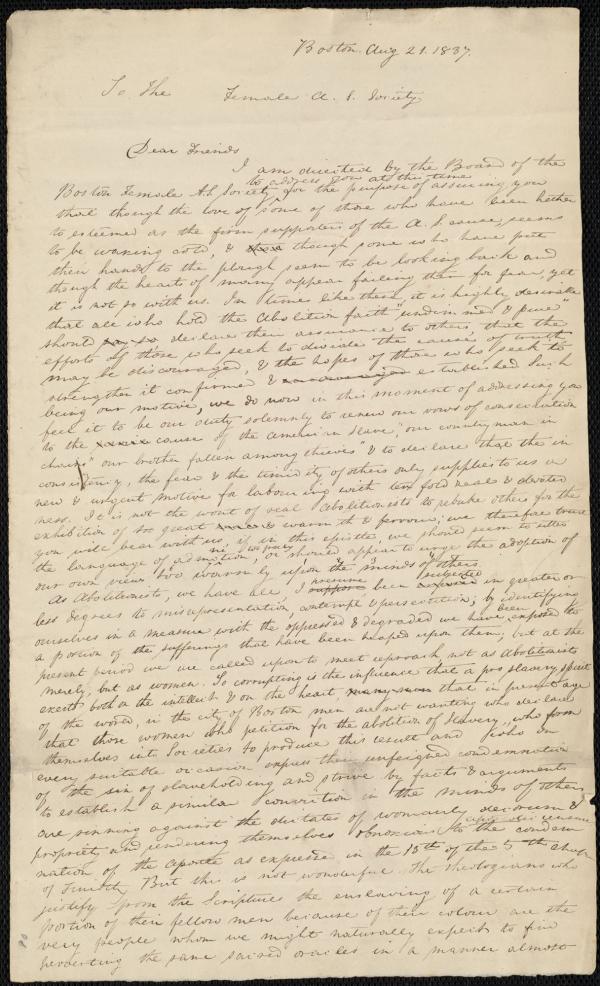 Boston Aug 21. 1837.
To The Female A. S. Society
Dear Friends
I am directed by the Board of the
to address you at this time
Boston Female A.S. Society for the purpose of assuring you
that though the love of some of those who have been hither
to esteemed as the firm supporters of the A. S. cause, seems
to be waxing cold, & though some who have put
their hands to the plough seem to be looking back and
though the hearts of many appear failing them for fear, yet
it is not so with us. In times like these, it is highly desirable
that all who hold the Abolition faith "undimmed & pure"
should declare their assurance to others, that the
efforts of those who seek to divide the cause of truth
may be discouraged, & the hopes of those who seek to
strengthen it confirmed & established. Such
being our motive, we do now in this moment of addressing you
feel it to be our duty solemnly to renew our vows of consecration
to the cause of the American Slave, "our countryman in
chains" "our brother fallen among thieves" & to declare that the in
consistency, the fear & the timidity of others only supplies to us a
new & urgent motive for labouring with ten fold zeal & devoted
ness. It is not the wont of real Abolitionists to rebuke others for the
exhibition of too great warmth & fervour; we therefore trust
you will bear with us, if in this epistle, we should seem to utter
the language of admonition, or should appear to urge the adoption of
our own views too warmly upon the minds of others.
presume subjected
As Abolitionists, we have all, I suppose been in greater or
less degrees to misrepresentation, contempt & persecution; by identifying
ourselves in a measure with the oppressed & degraded we have been exposed to
a portion of the sufferings that have been heaped upon them; but at the
present period we are called upon to meet reproach not as Abolitionists
merely, but as women. So corrupting is the influence that a pro slavery spirit
exerts both on the intellect & on the heart that in present age
of the world, in the city of Boston men are not wanting who declare
that those women who petition for the abolition of Slavery, who form
themselves into Societies to produce this result and who on
every suitable occasion express their unfeigned condemnation
of the sin of slaveholding and strive by facts & arguments
to establish a similar conviction in the minds of others
are sinning against the dictates of womanly decorum &
propriety and rendering themselves obnoxious to the condem
nation of the Apostle as expressed in the 13th of the 5th chap
of Timothy. But this is not wonderful. The theologians who
justify from the Scriptures the enslaving of a certain
portion of their fellow men because of their colour are the
very people whom we might naturally expect to find
perverting the same sacred oracles in a manner almost